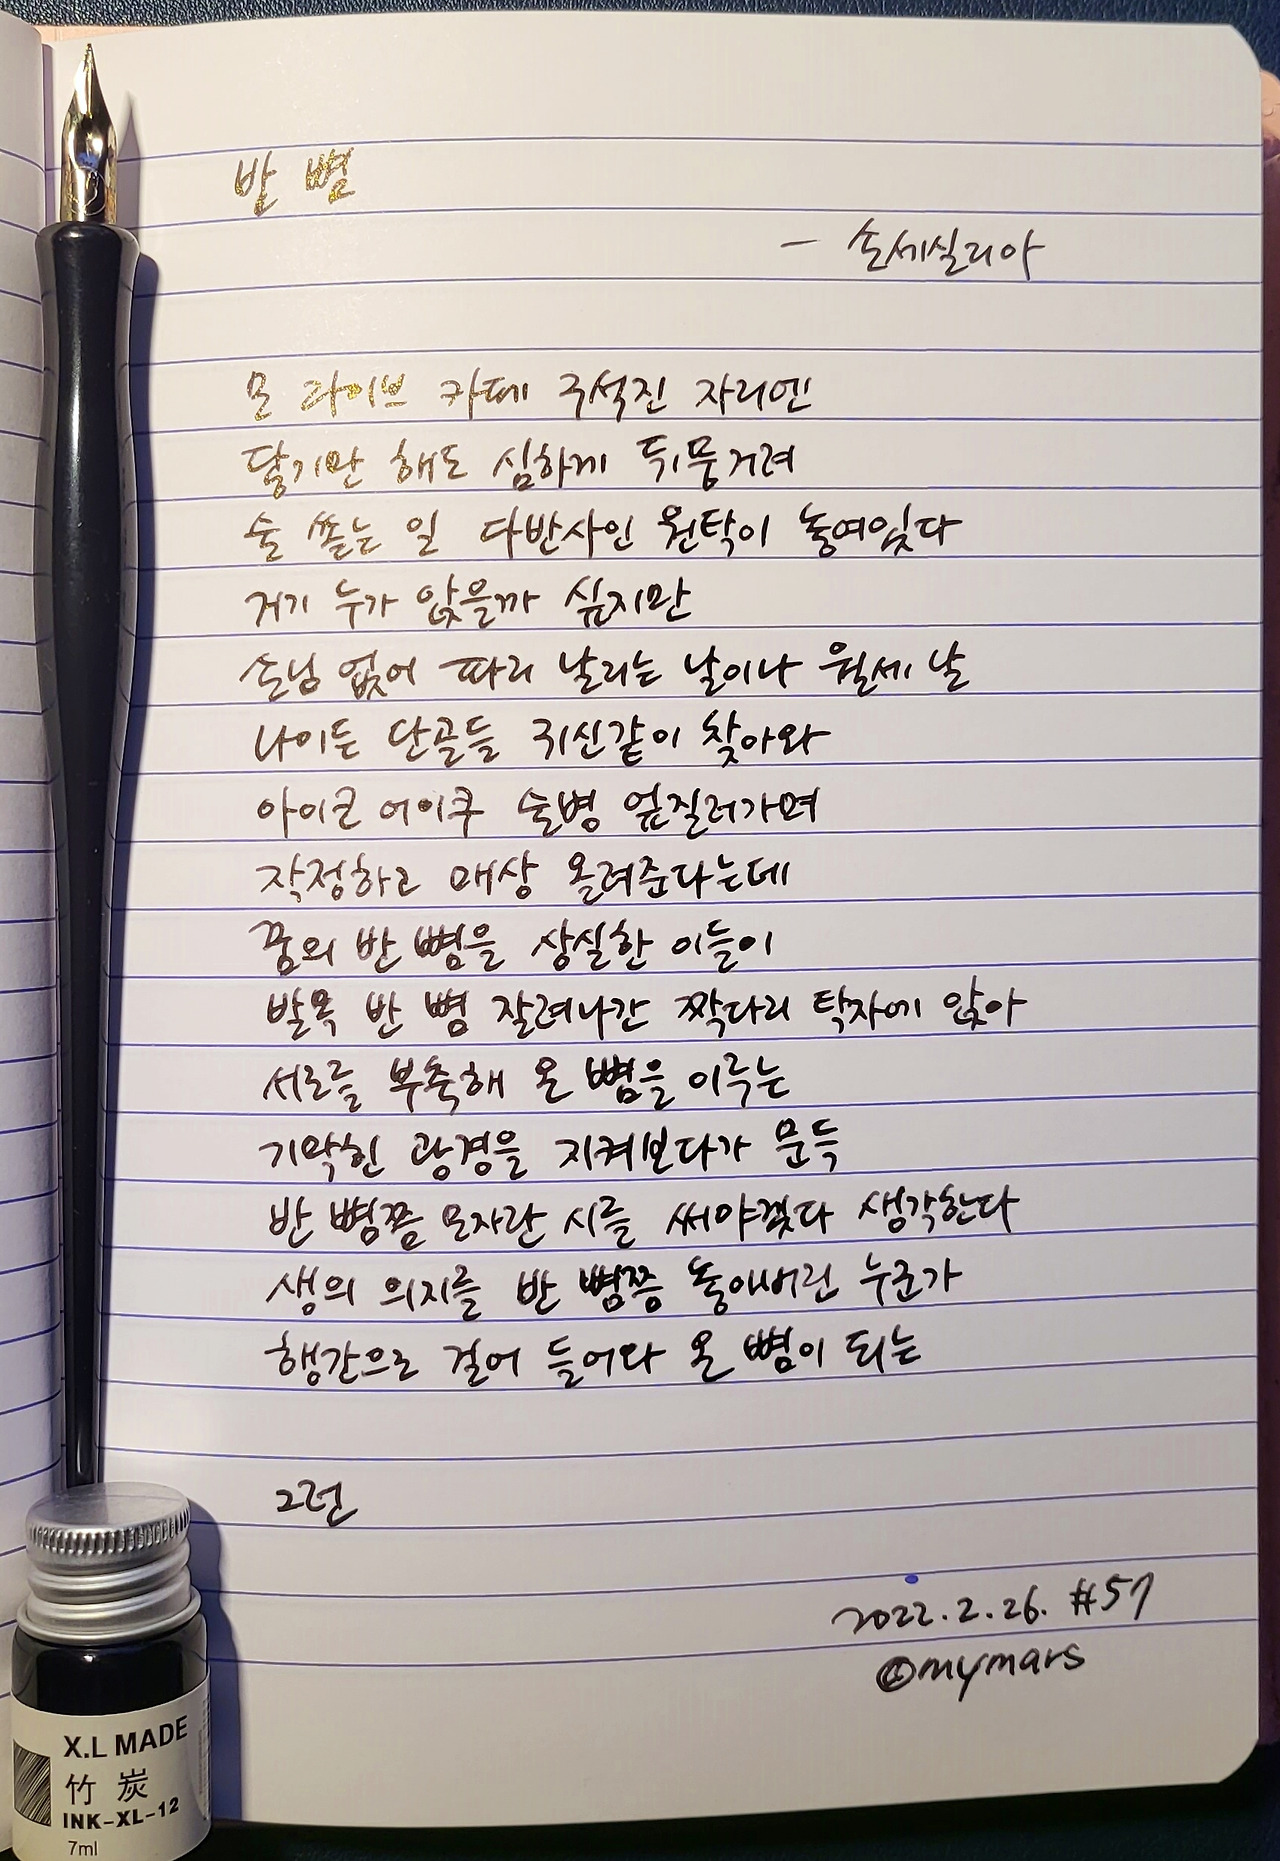 반 뼘
- 손세실리아
모 라이브 카페 구석진 자리엔
닿기만 해도 심하게 뒤뚱거려
술 쏟는 일 다반사인 원탁이 놓여있다
거기 누가 앉을까 싶지만
손님 없어 파리 날리는 날이나 월세 날
나이든 단골들 귀신같이 찾아와
아이코 어이쿠 술병 엎질러가며
작정하고 매상 올려준다는데
꿈의 반 뼘을 상실한 이들이
발목 반 뼘 잘려나간 짝다리 탁자에 앉아
서로를 부축해 온 뼘을 이루는
기막힌 광경을 지켜보다가 문득
반 뼘쯤 모자란 시를 써야겠다 생각한다
생의 의지를 반 뼘쯤 놓아버린 누군가
행간으로 걸어 들어와 온 뼘이 되는
그런
2022.2.26. #57
@mymars
X.L MADE
竹 炭
INK-XL-12
7ml